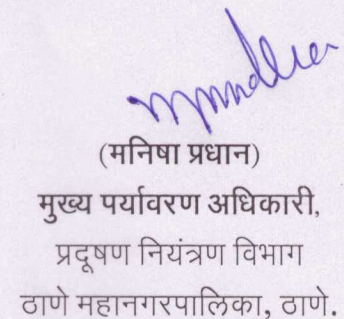 (मनिषा प्रधान)
मुख्य पर्यावरण अधिकारी,
प्रदूषण नियंत्रण विभाग
ठाणे महानगरपालिका, ठाणे.